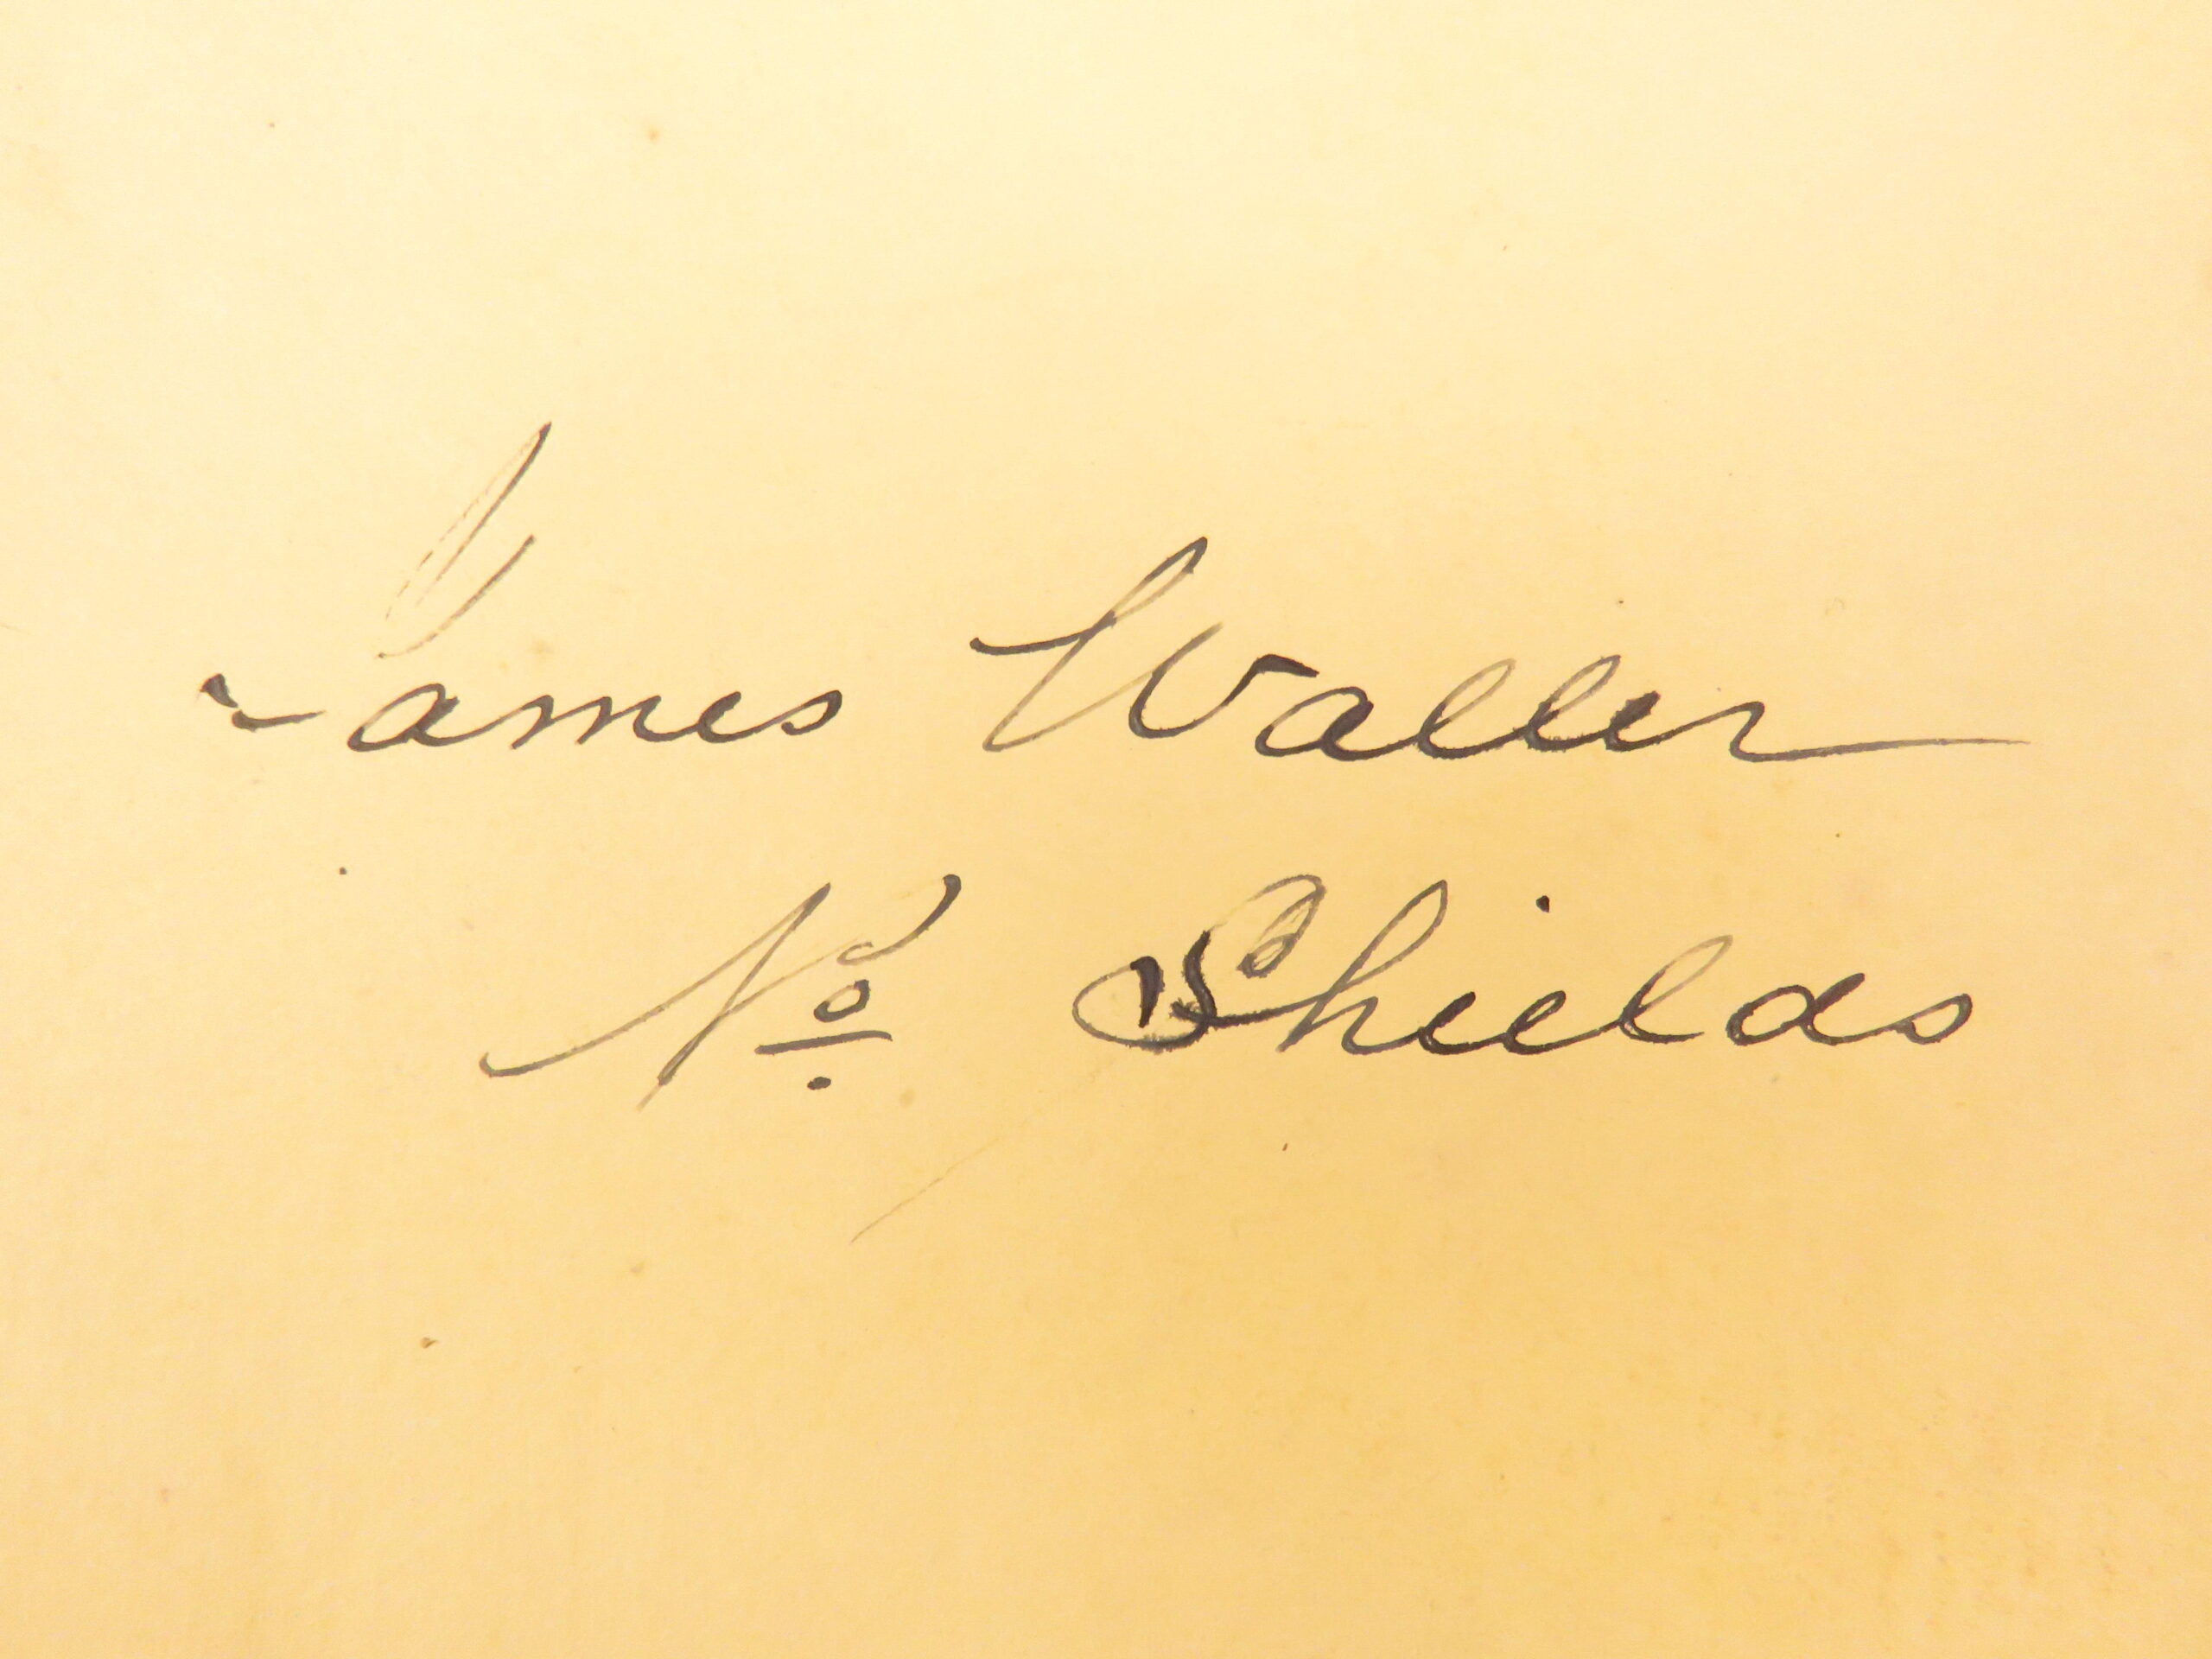 James Waller
No. Shields